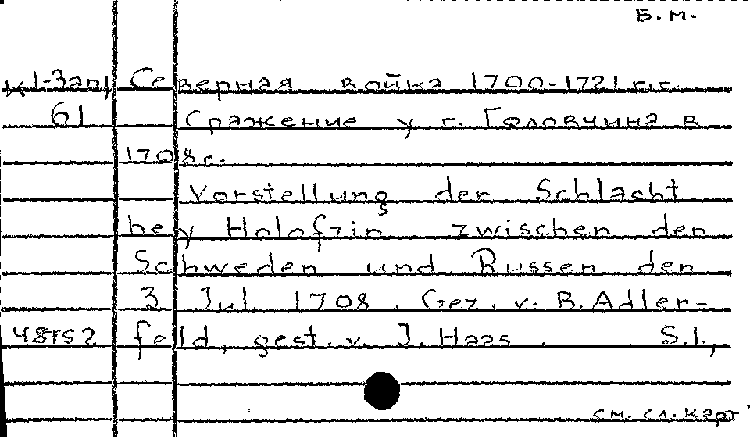 Б.м.
К 1-Зап/ Северная война 1700-1721 г.г.
61 Сражение у г. Головчина в
1708 г.
Vorstellung der Schlacht
bey Holofzin zwischen den
Schweden und Russen den
3 Jul. 1708. Gez. v. B. Adler-
48752 feld, gest. v. J. Haas. S.l.,
см. сл. карт.